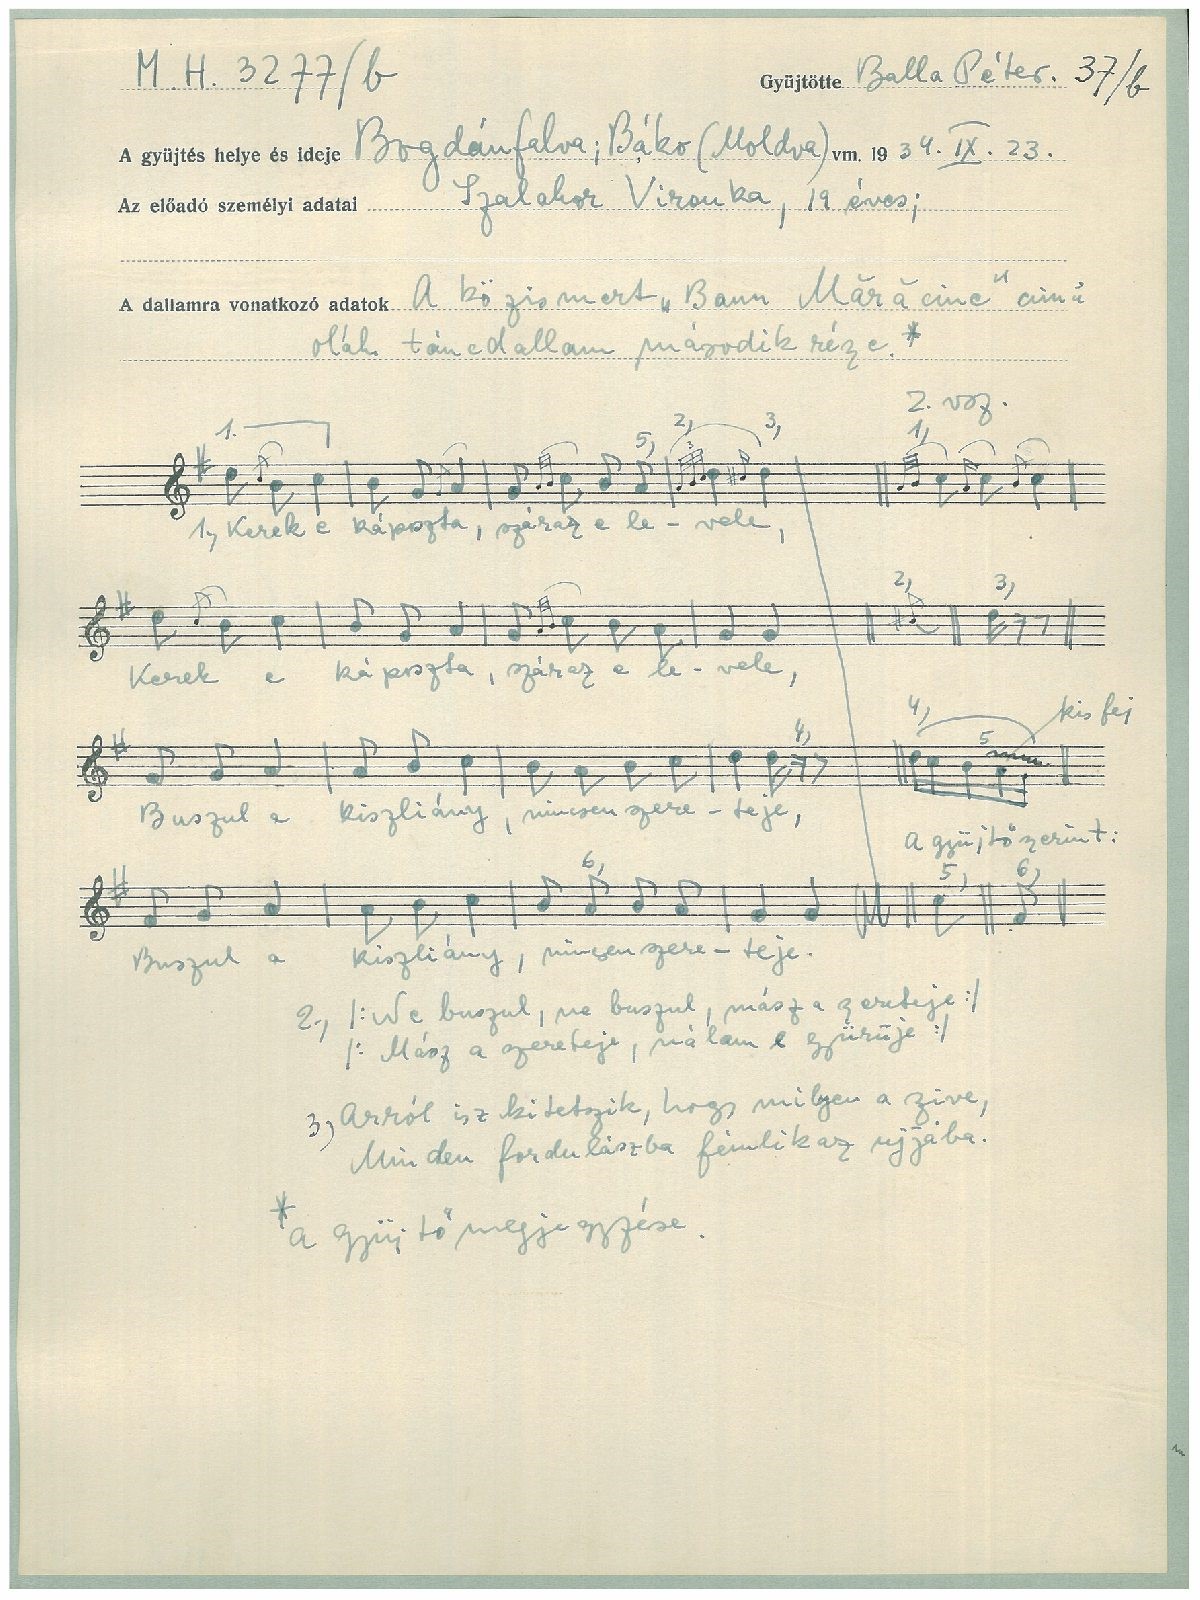 M.H. 3277/b
Gyűjtötte Balla Péter. 37/b
A gyűjtés helye és ideje Bogdánfalva; Báko (Moldva) vm. 19 34. IX. 23.
Az előadó személyi adatai Szalahor Vironka, 19 éves;
A dallamra vonatkozó adatok A közismert „Banu Mărăcine" cimű
oláh táncdallam második része.*
2. vsz.
1. 5, 2, 3, 1,
1, Kerek e káposzta, száraz e le - vele,
2, 3,
Kerek e káposzta, száraz e le - vele,
4, 4, 5 kis fej
Buszul a kiszliány, nincsen szere - teje,
a gyüjtő szerint:
6, 5, 6,
Buszul a kiszliány, nincsen szere - teje.
2., /: Ne buszul, ne buszul, mász a szereteje :/
/: Mász a szereteje, nálam e gyürüje :/
3, Arról isz kitetszik, hogy milyen a szive,
Minden fordulászba fémlik az ujjába.
* a gyüjtő megjegyzése.